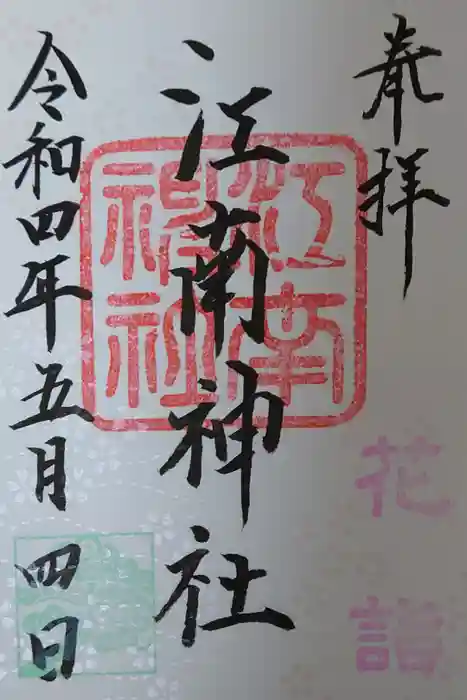 奉拝
花詣
江南神社
江南
神社
令和四年五月四日